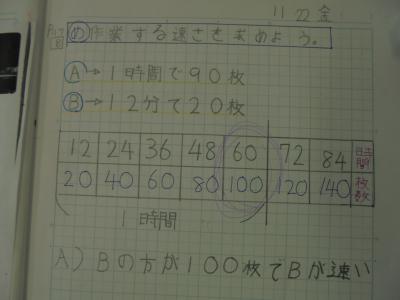 11 22 金
P117 8
め 作業する速さを求めよう。
A→1時間で90枚
B→12分で20枚
12 24 36 48 60 72 84 時間
20 40 60 80 100 120 140 枚数
1時間
A) Bの方が100枚でBが速い